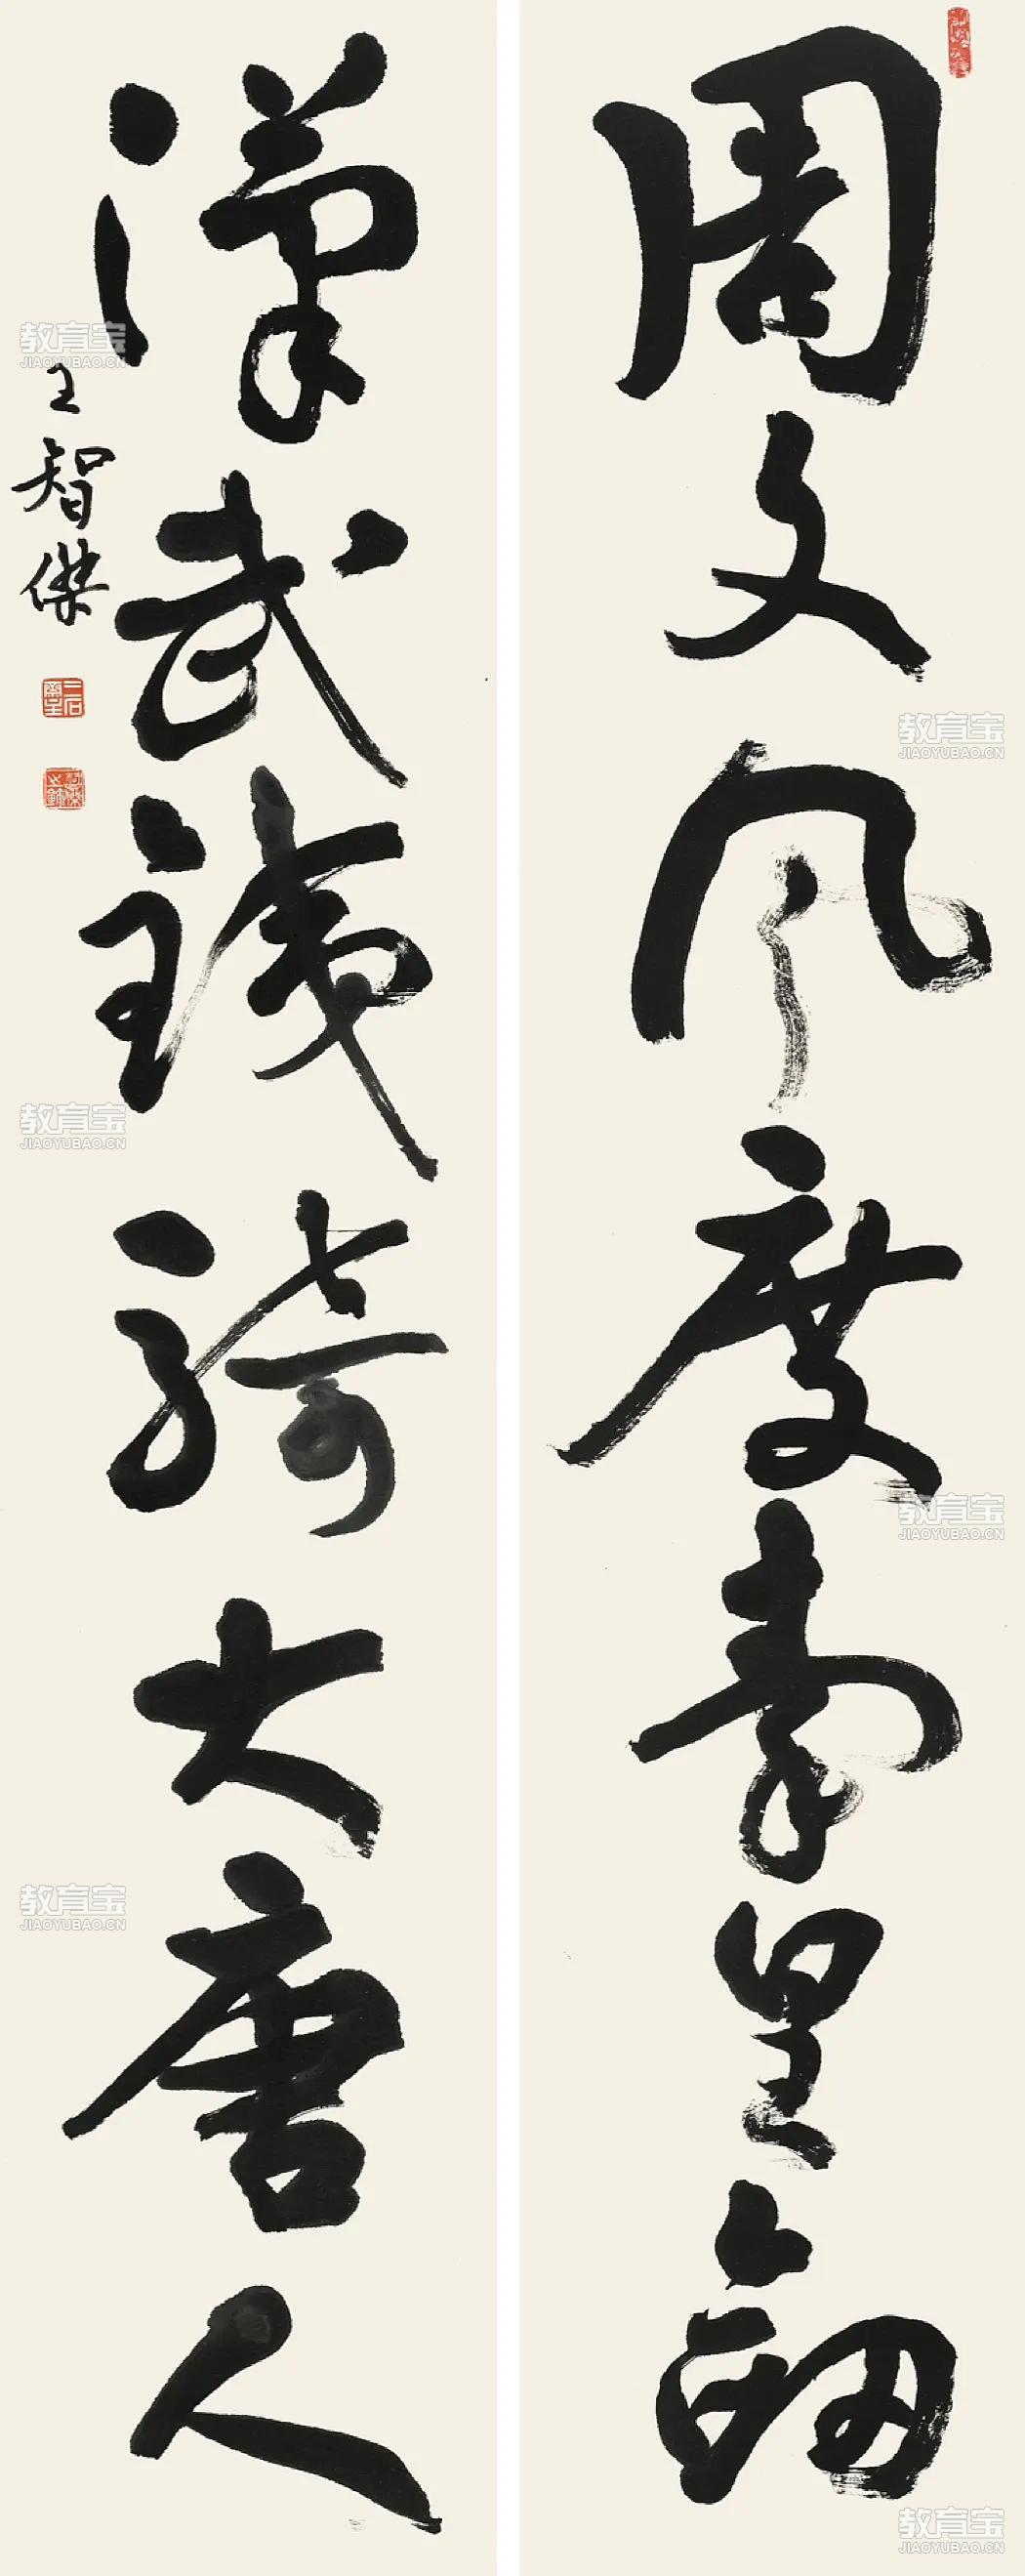 周文风度秦皇劒
漢武鐵騎大唐人
王智傑
教育宝
JIAOYUBAO.CN
教育宝
JIAOYUBAO.CN
教育宝
JIAOYUBAO.CN
教育宝
JIAOYUBAO.CN
教育宝
JIAOYUBAO.CN
教育宝
JIAOYUBAO.CN